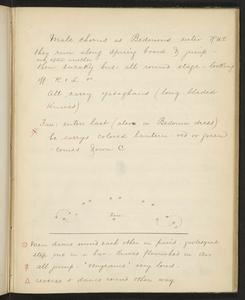 Male chorus as Bedouins enter
they run along spring board & jump -
one after another
then sneaky bus. all round stage - looking
off R & L
All carry yataghans (long bladed
knives)
Fan enters last (also in Bedouin dress)
he carrys colored lantern red or green
comes down C.
Fan
Men dance round each other in pairs grotesque
step one in a bar. Knives flourished in
all jump. very loud.
reverse & dance round other way.